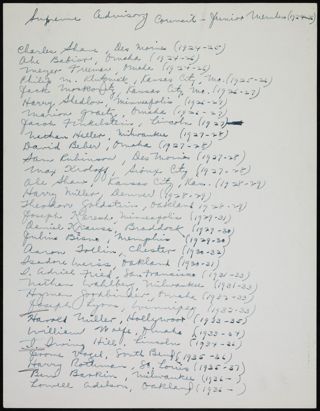 Supreme Advisory Council - Junior Members (1924-26)
Charles Shane, Des Moines (1924-25)
Abe Babior, Omaha (1924-26)
Meyer Freiden, Omaha (1924-26)
Philip M. Klutznick, Kansas City, Mo. (1925-26)
Jack Moskovitz, Kansas City, Mo. (1926-27)
Harry Shedlov, Minneapolis (1926-27)
Marion Graetz, Omaha (1926-27)
Jacob Finkelstein, Lincoln (1927)
Nathan Heller, Milwaukee (1927-28)
David Beber, Omaha (1927-28)
Sam Rubinson, Des Moines (1927-28)
Max Kroloff, Sioux City (1927-28)
Abe Shane, Kansas City, Kans. (1928-29)
Harry Miller, Denver (1928-29)
Theodore Goldstein, Oakland (1928-29)
Joseph Karesh, Minneapolis (1929-31)
Daniel Krause, Braddock (1929-30)
Julius Bisno, Memphis (1929-30)
Aaron Tollin, Chester (1930-32)
Isadore Weiss, Oakland (1930-31)
I. Adriel Fried, San Francisco (1931-33)
Nathan Wahlberg, Milwaukee (1931-33)
Hyman Goodbinder, Omaha (1932-33)
Joseph Winnipeg (1932-33)
Harold Miller, Hollywood (1933-35)
William Wolfe, Omaha (1933-34)
I. Irving Hill, Lincoln (1934-36)
Jerome Vogel, South Bend (1935-36)
Harry Rothman, St. Louis (1935-37)
Ben Barkin, Milwaukee (1936- )
Lowell Adelson, Oakland (1936- )